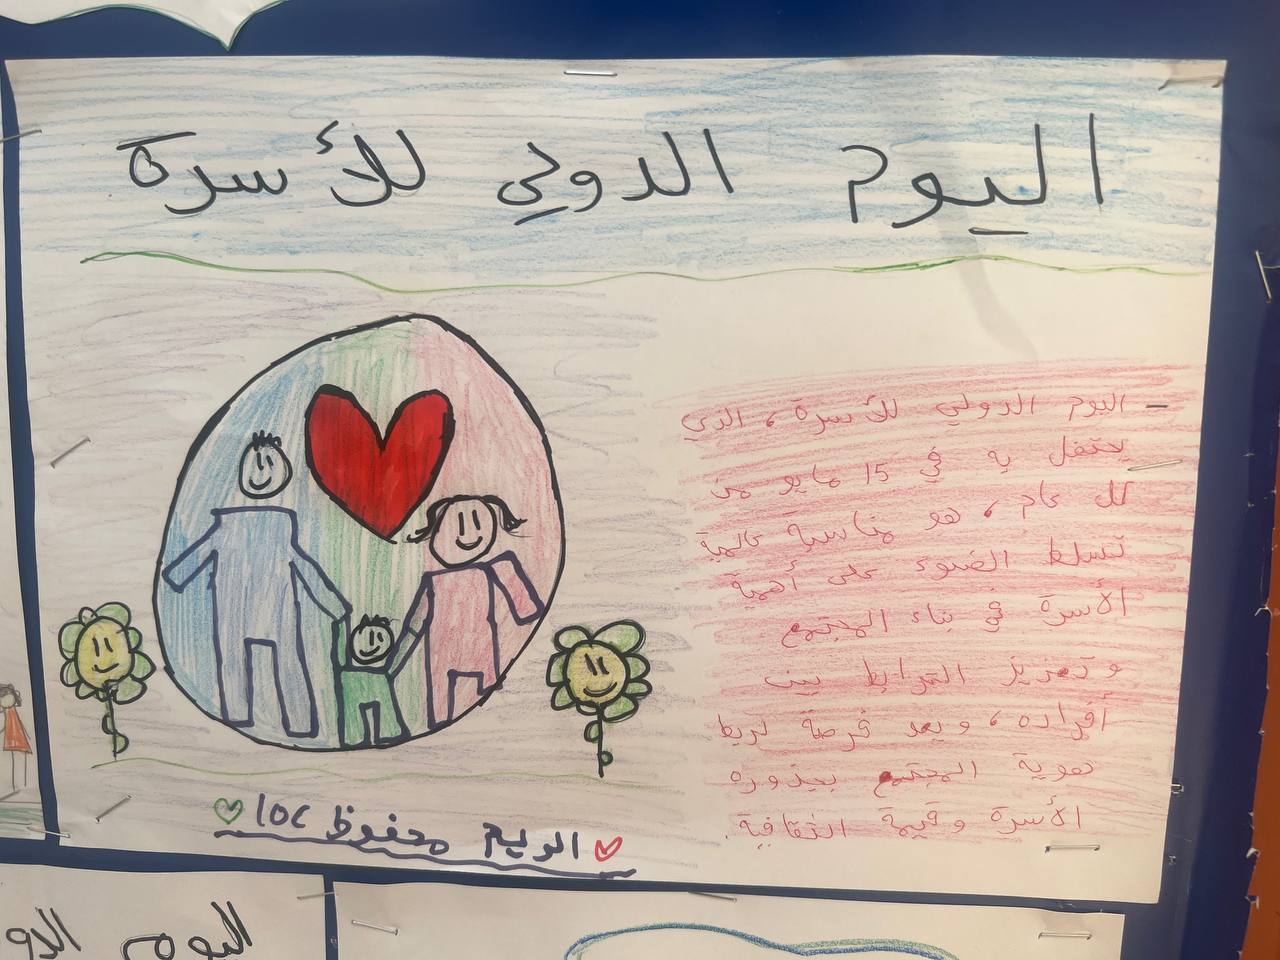 اليوم الدولي للأسرة
اليوم الدولي للأسرة، الذي
يحتفل به في 15 مايو من
كل عام، هو مناسبة عالمية
تسلط الضوء على أهمية
الأسرة في بناء المجتمع
وتعزيز الترابط بين
أفراده، ويعد فرصة لربط
هوية المجتمع بجذوره
الأسرة وقيمة الثقافية.
محفوظ 10c
اليوم